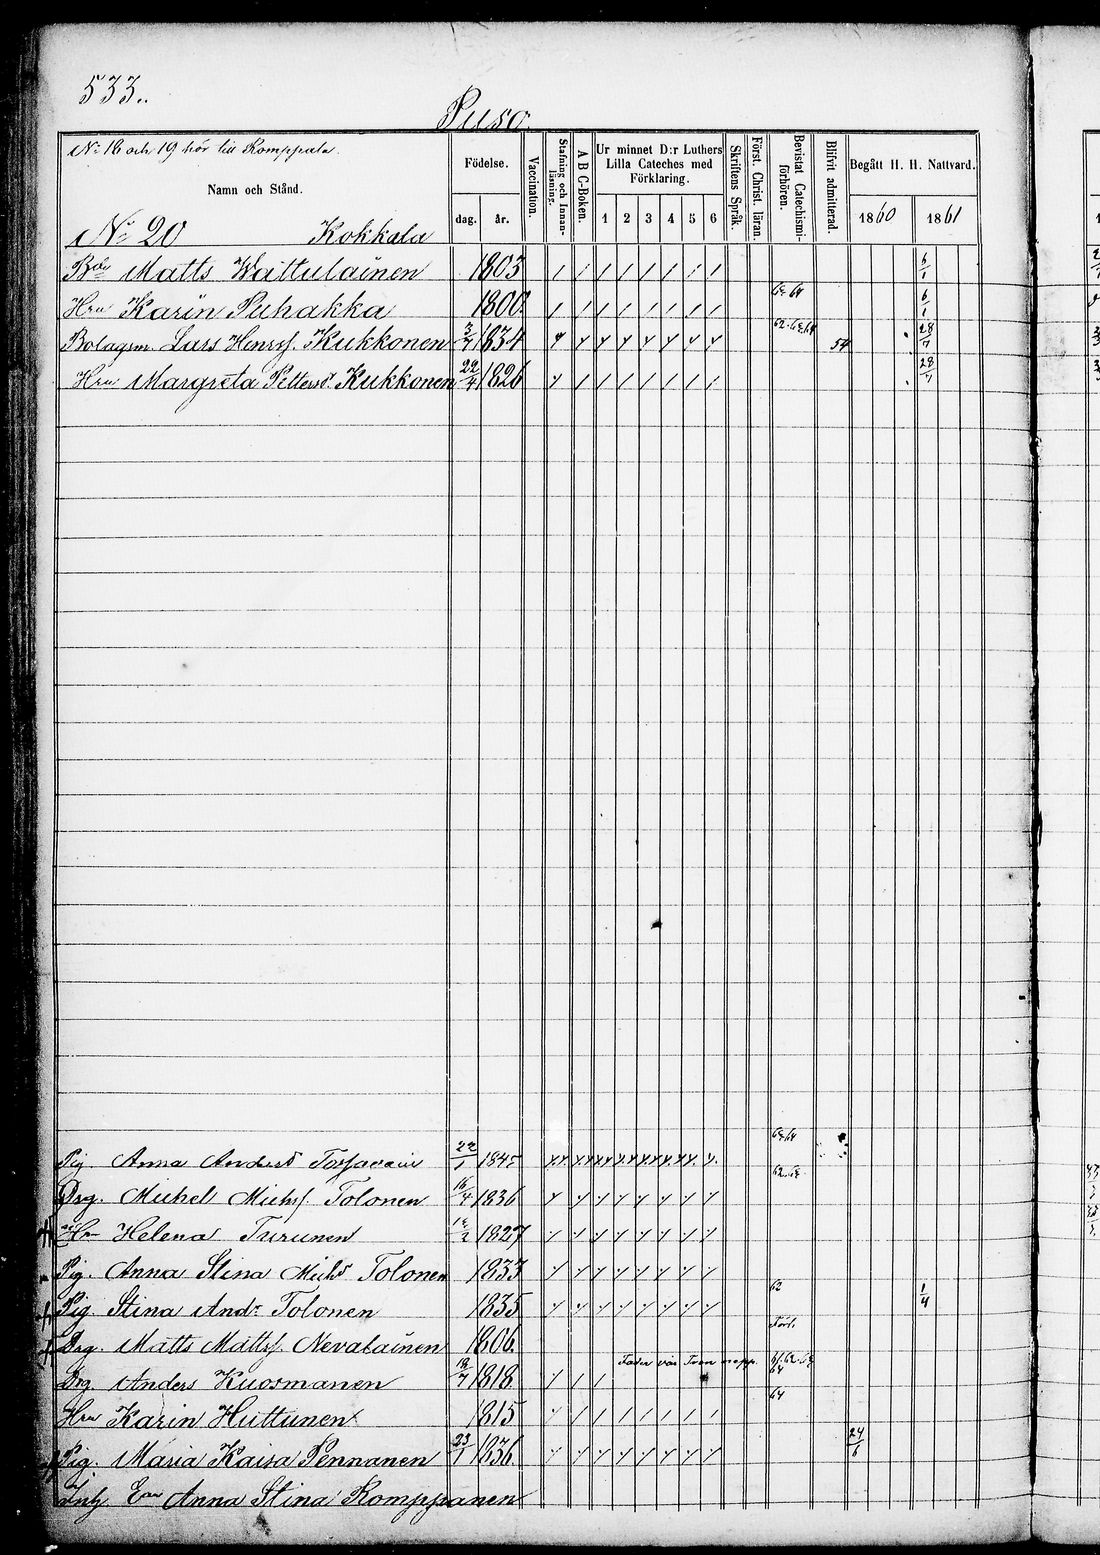 533.
Puso
No 18 och 19 hör till Komppala.
Namn och Stånd.
Födelse.
dag. år.
Vaccination.
Stafning och Innanläsning.
A B C-Boken.
Ur minnet D:r Luthers Lilla Cateches med Förklaring.
1 2 3 4 5 6
Skriftens Språk.
Först. Christ. läran.
Bevistat Catechismi-förhören.
Blifvit admitterad.
Begått H. H. Nattvard.
1860 1861
No 20 Kokkala
Matts Wattulainen 1803 6/1
Hru Karin Puhakka 1800. 63 64 6/1
Bolagsm. Lars Henrs. Kukkonen 3/7 1834 62.63.64 54 28/7
Hru Margreta Pettersd. Kukkonen 22/4 1826 28/7
Pig. Anna Andersd 22/1 1845 63 64
Drg. Michel Michs. Tolonen 16/4 1836 62.63
Hru Helena Turunen 1827
Pig. Anna Stina Michsd Tolonen 1833
Pig. Stina Andr. Tolonen 1835 62 1/4
Drg. Matts Matts. Nevalainen 1806.
Drg. Anders Kuosmanen 18/7 1818 61.62.63 64
Hru Karin Huttunen 1815 64
Pig. Maria Kaisa Pennanen 23/1 1836 24/6
Inh. Enk Anna Stina Komppanen